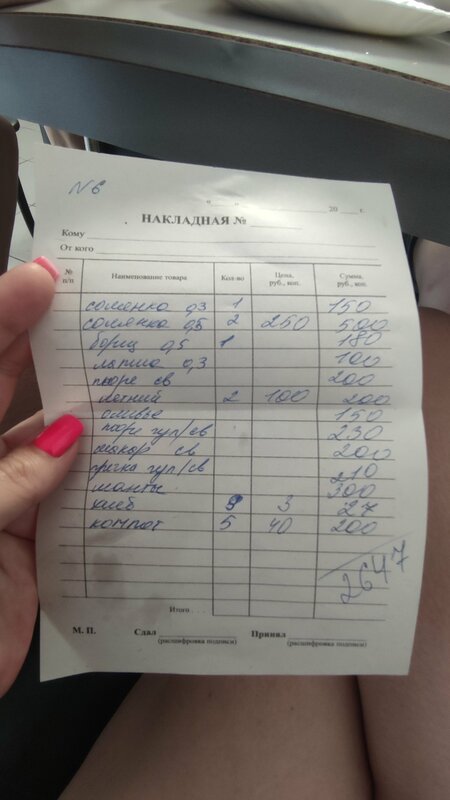 N6
" " 20 г.
НАКЛАДНАЯ №
Кому
От кого
№ п/п Наименование товара Кол-во Цена, руб., коп. Сумма, руб., коп.
солянка 0,3 1 150
солянка 0,5 2 250 500
борщ 0,5 1 180
лапша 0,3 100
пюре св 200
летний 2 100 200
оливье 150
пюре гул/св 230
макар св 200
гречка гул/св 210
манты 300
хлеб 9 3 27
компот 5 40 200
2647
Итого
М. П. Сдал Принял
(расшифровка подписи) (расшифровка подписи)